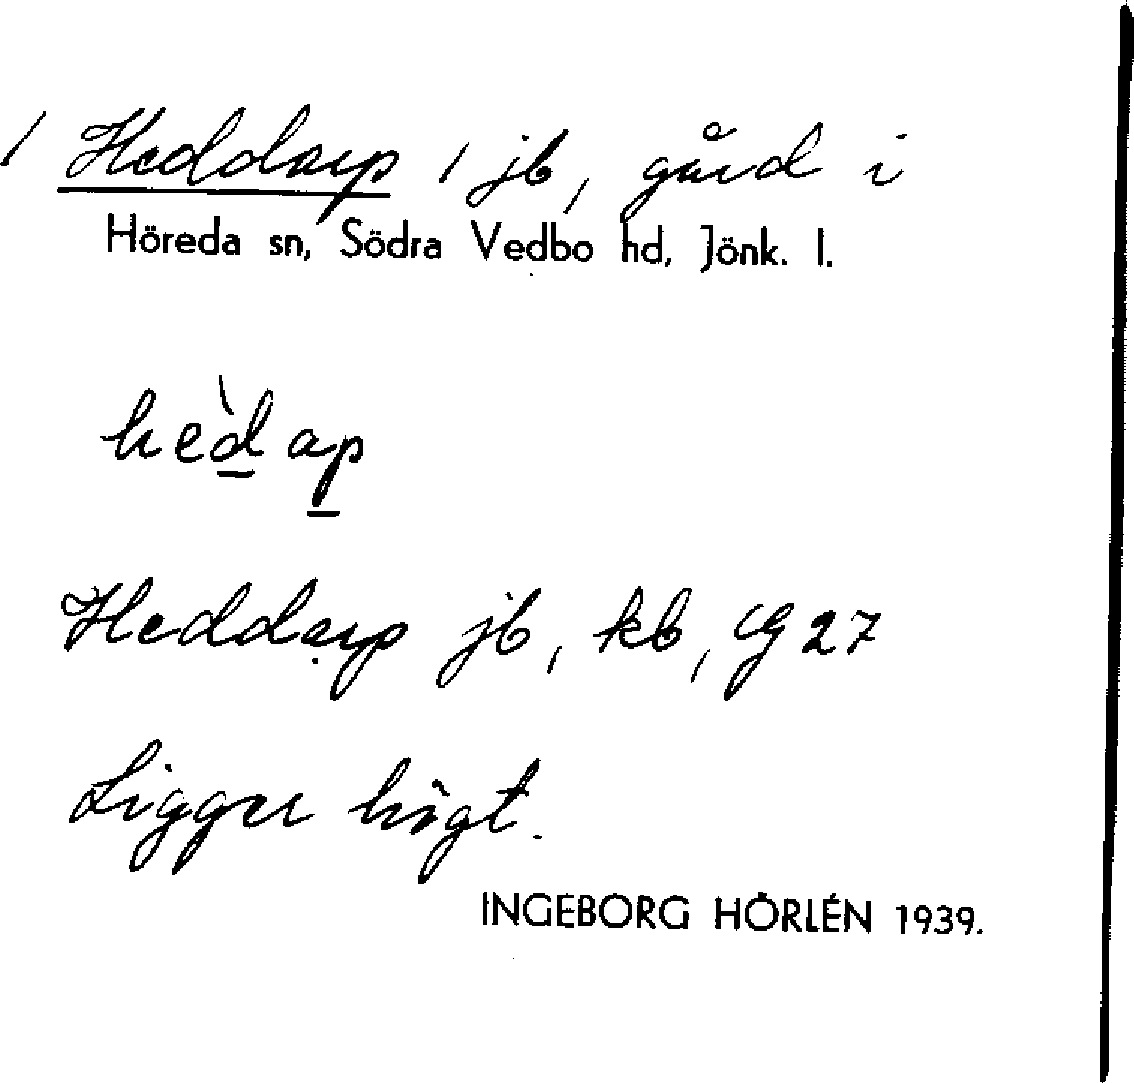 / Heddarp / jb, gård i
Höreda sn, Södra Vedbo hd, Jönk. l.
hed̀ap
Heddarp jb, kb, G 27
Ligger högt.
INGEBORG HÖRLÉN 1939.